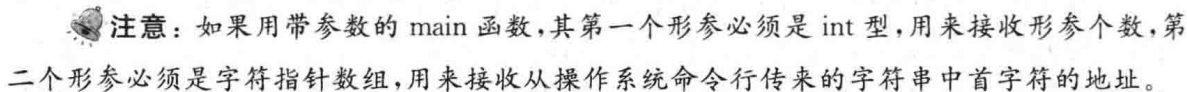 注意：如果用带参数的 main 函数,其第一个形参必须是 int 型,用来接收形参个数,第
二个形参必须是字符指针数组,用来接收从操作系统命令行传来的字符串中首字符的地址。